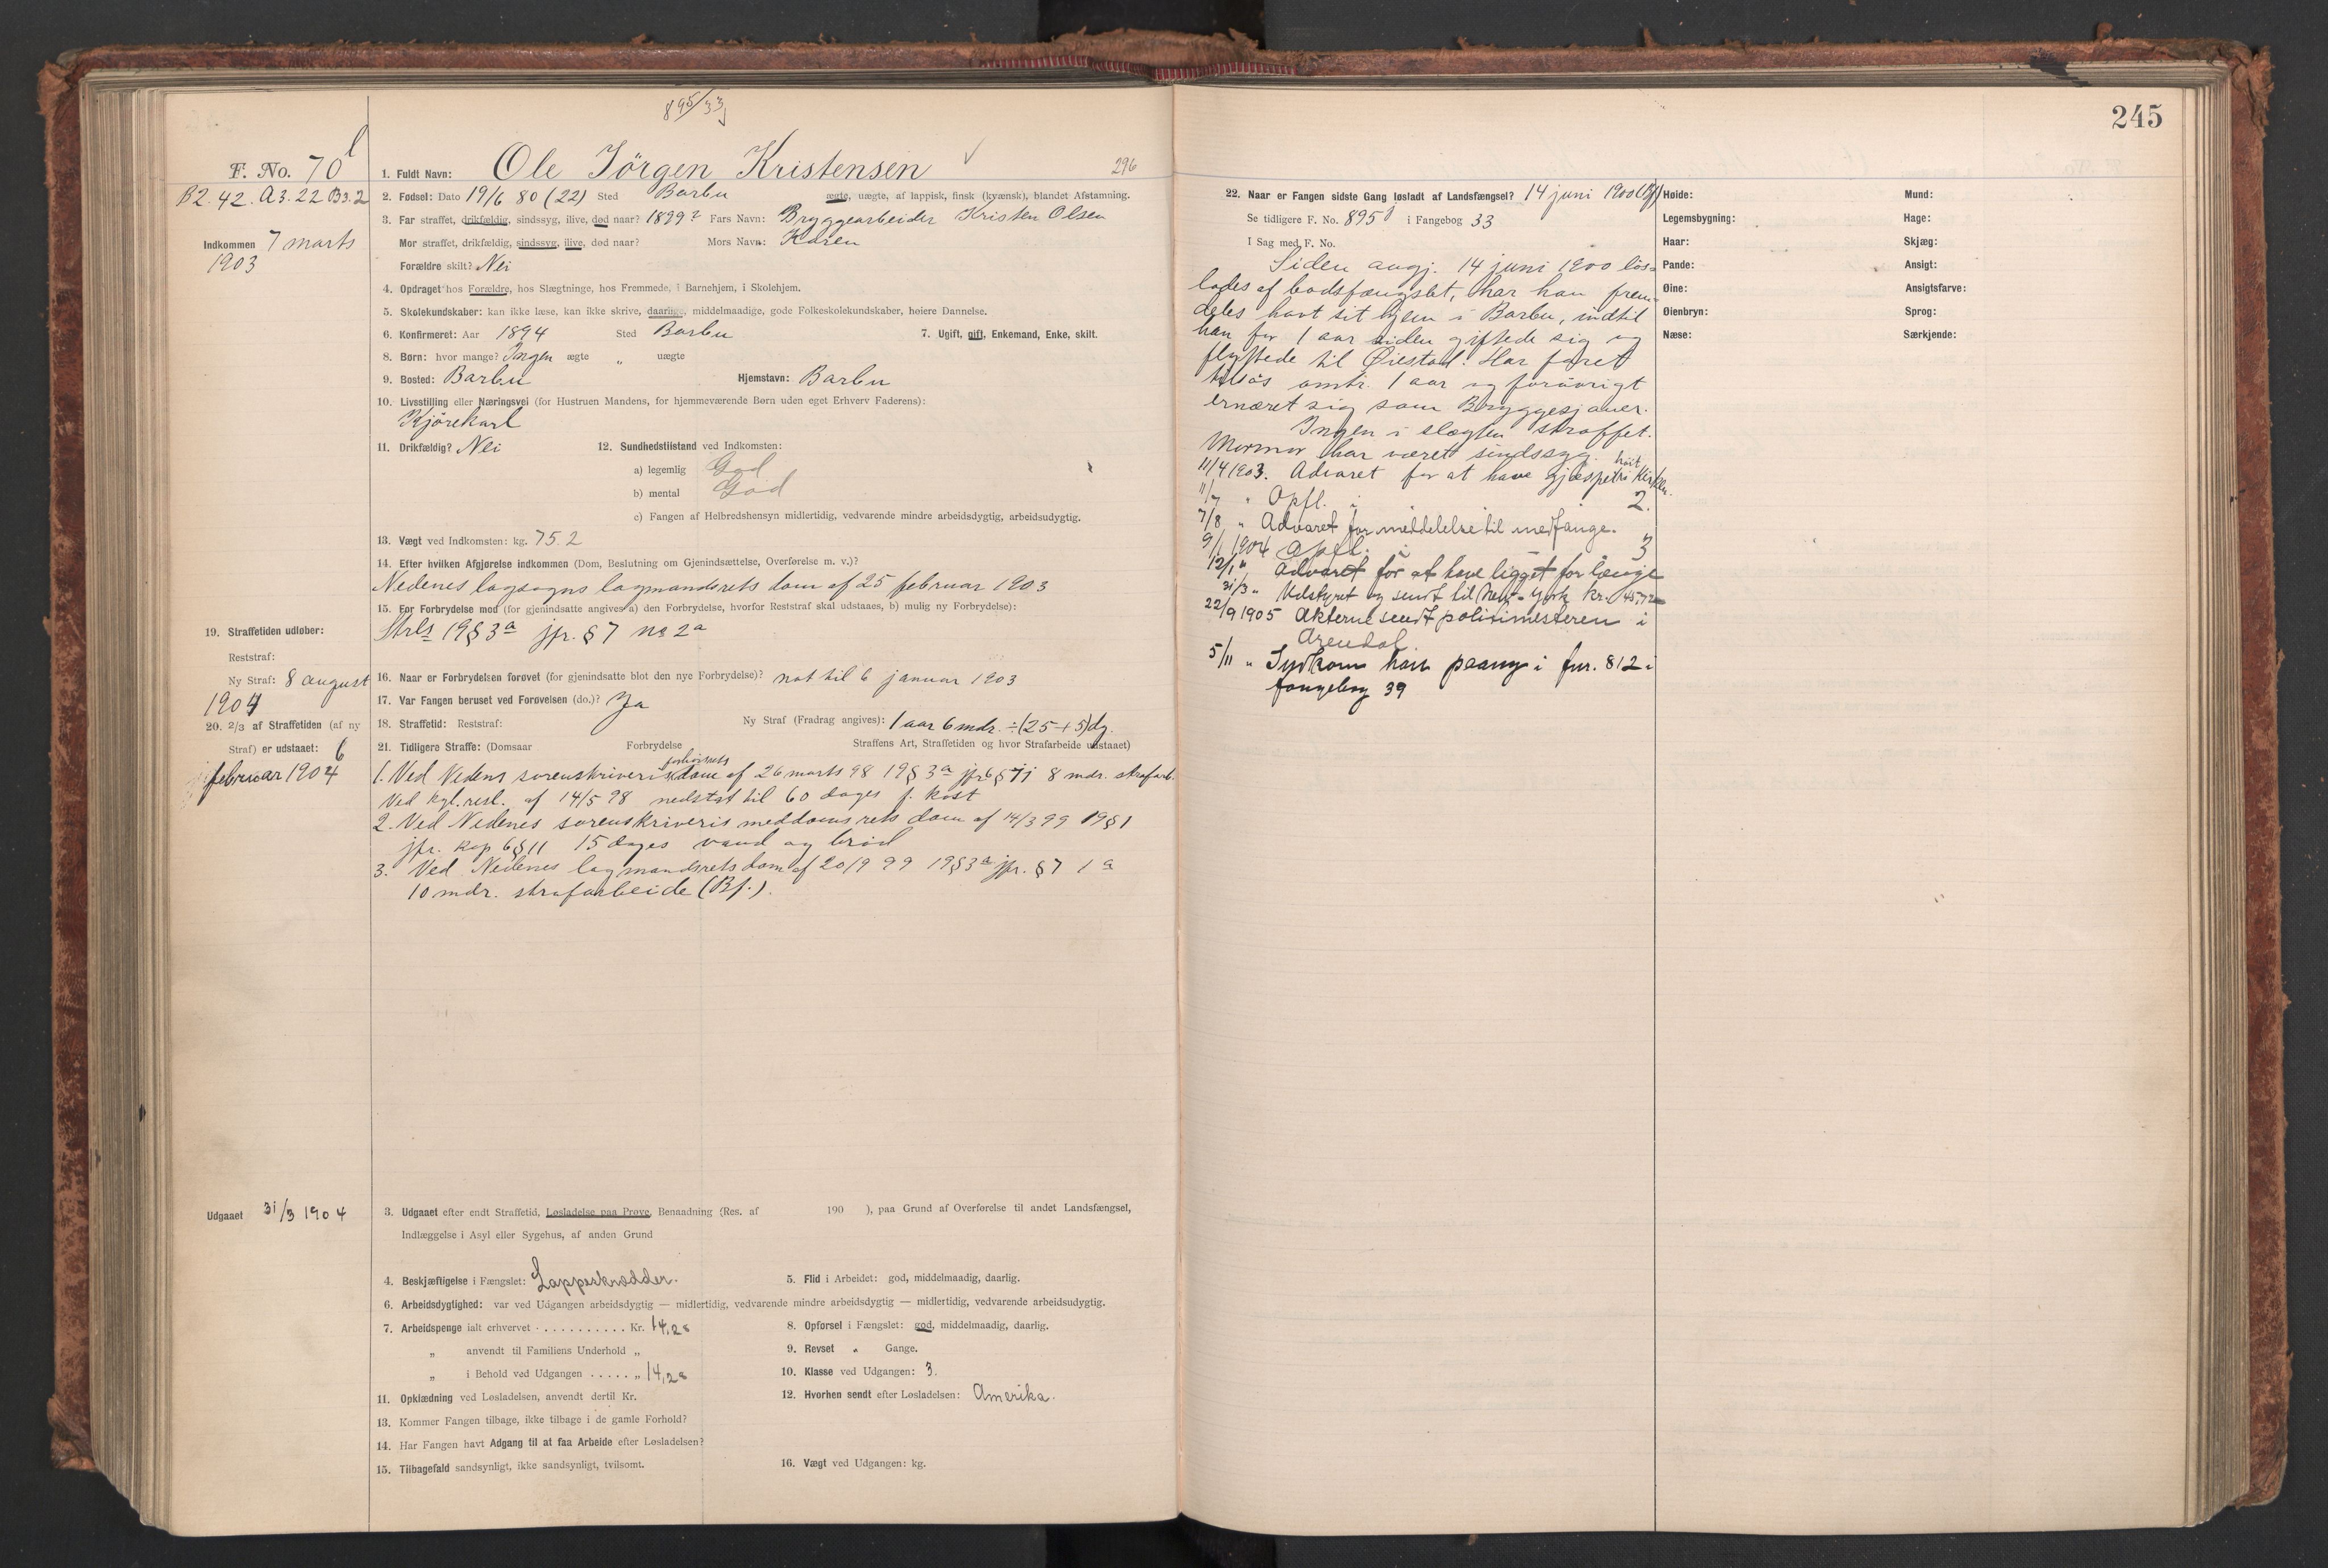 895/33
F. No. 70
1. Fuldt Navn: Ole Jörgen Kristensen
296
B2. 42. A3. 22 B3. 2
2. Fødsel: Dato 19/6 80 (22) Sted Barbu ægte, uægte, af lappisk, finsk (kvænsk), blandet Afstamning.
3. Far straffet, drikfældig, sindssyg, ilive, død naar? 1899? Fars Navn: Bryggearbeider Kristen Olsen
Indkommen 7 marts
1903
Mor straffet, drikfældig, sindssyg, ilive, død naar? Mors Navn: Karen
Forældre skilt? Nei
4. Opdraget hos Forældre, hos Slægtninge, hos Fremmede, i Barnehjem, i Skolehjem.
5. Skolekundskaber: kan ikke læse, kan ikke skrive, daarlige, middelmaadige, gode Folkeskolekundskaber, høiere Dannelse.
6. Konfirmeret: Aar 1894 Sted Barbu 7. Ugift, gift, Enkemand, Enke, skilt.
8. Børn: hvor mange? Ingen ægte " uægte
9. Bosted: Barbu Hjemstavn: Barbu
10. Livsstilling eller Næringsvei (for Hustruen Mandens, for hjemmeværende Børn uden eget Erhverv Faderens):
Kjörekarl
11. Drikfældig? Nei 12. Sundhedstilstand ved Indkomsten:
a) legemlig God
b) mental God
c) Fangen af Helbredshensyn midlertidig, vedvarende mindre arbeidsdygtig, arbeidsudygtig.
13. Vægt ved Indkomsten: kg. 75.2
14. Efter hvilken Afgjørelse indkommen (Dom, Beslutning om Gjenindsættelse, Overførelse m. v.)?
Nedenes lagsogns lagmandsrets dom af 25 februar 1903
15. For Forbrydelse med (for gjenindsatte angives a) den Forbrydelse, hvorfor Reststraf skal udstaaes, b) mulig ny Forbrydelse):
Strls 19 § 3a jfr. § 7 no 2a
19. Straffetiden udløber:
Reststraf:
Ny Straf: 8 august
1904
16. Naar er Forbrydelsen forøvet (for gjenindsatte blot den nye Forbrydelse)? nat til 6 januar 1903
17. Var Fangen beruset ved Forøvelsen (do.)? Ja
20. 2/3 af Straffetiden (af ny
Straf) er udstaaet: 6
februar 1904
18. Straffetid: Reststraf: Ny Straf (Fradrag angives): 1 aar 6 mdr. ÷ (25 + 5) dg.
21. Tidligere Straffe: (Domsaar Forbrydelse Straffens Art, Straffetiden og hvor Strafarbeide udstaaet)
forhörsrets
1. Ved Nedens sorenskriveris dom af 26 marts 98 19 § 3a jfr 6 § 11 8 mdr. strafarb.
Ved kgl. resl. af 14/5 98 nedstat til 60 dages f. kost
2. Ved Nedenes sorenskriveris meddomsrets dom af 14/3 99 19 § 1
jfr. kap 6 § 11 15 dages vand og bröd
3. Ved Nedenes lagmandsrets dom af 20/9 99 19 § 3a jfr. § 7 1a
10 mdr. strafarbeide (Bf.).
Udgaaet 31/3 1904
3. Udgaaet efter endt Straffetid, Løsladelse paa Prøve, Benaadning (Res. af 190 ), paa Grund af Overførelse til andet Landsfængsel,
Indlæggelse i Asyl eller Sygehus, af anden Grund
4. Beskjæftigelse i Fængslet: Lappeskrædder. 5. Flid i Arbeidet: god, middelmaadig, daarlig.
6. Arbeidsdygtighed: var ved Udgangen arbeidsdygtig — midlertidig, vedvarende mindre arbeidsdygtig — midlertidig, vedvarende arbeidsudygtig.
7. Arbeidspenge ialt erhvervet . . . . . . . . . . . Kr. 14,28 8. Opførsel i Fængslet: god, middelmaadig, daarlig.
" anvendt til Familiens Underhold " 9. Revset " Gange.
" i Behold ved Udgangen . . . . . " 14,28 10. Klasse ved Udgangen: 3.
11. Opklædning ved Løsladelsen, anvendt dertil Kr. 12. Hvorhen sendt efter Løsladelsen: Amerika.
13. Kommer Fangen tilbage, ikke tilbage i de gamle Forhold?
14. Har Fangen havt Adgang til at faa Arbeide efter Løsladelsen?
15. Tilbagefald sandsynligt, ikke sandsynligt, tvilsomt. 16. Vægt ved Udgangen: kg.
245
22. Naar er Fangen sidste Gang løsladt af Landsfængsel? 14 juni 1900 (Bf)
Se tidligere F. No. 895 i Fangebog 33
I Sag med F. No.
Siden angj. 14 juni 1900 lös-
lades af bodsfængslet, har han frem-
deles havt sit hjem i Barbu, indtil
han for 1 aar siden giftede sig og
flyttede til Øiestad. Har faret
tilsös omtr. 1 aar og forövrigt
ernæret sig som Bryggesjauer.
Ingen i slægten straffet.
Mormor har været sindssyg.
11/4 1903. Advaret for at have gjespet höit i Kirken.
11/7 " Opfl. i 2.
7/8 " Advaret for meddelelse til medfange.
9/1 1904 Opfl. i 3
12/1 " Advaret for at have ligget for længe
31/3 " Udstyret og sendt til New-York kr. 145,72
22/9 1905 Akterne sendt politimesteren i
Arendal.
5/11 " Indkom han paany i fnr. 812 i
fangebog 39
Høide: Mund:
Legemsbygning: Hage:
Haar: Skjæg:
Pande: Ansigt:
Øine: Ansigtsfarve:
Øienbryn: Sprog:
Næse: Særkjende: